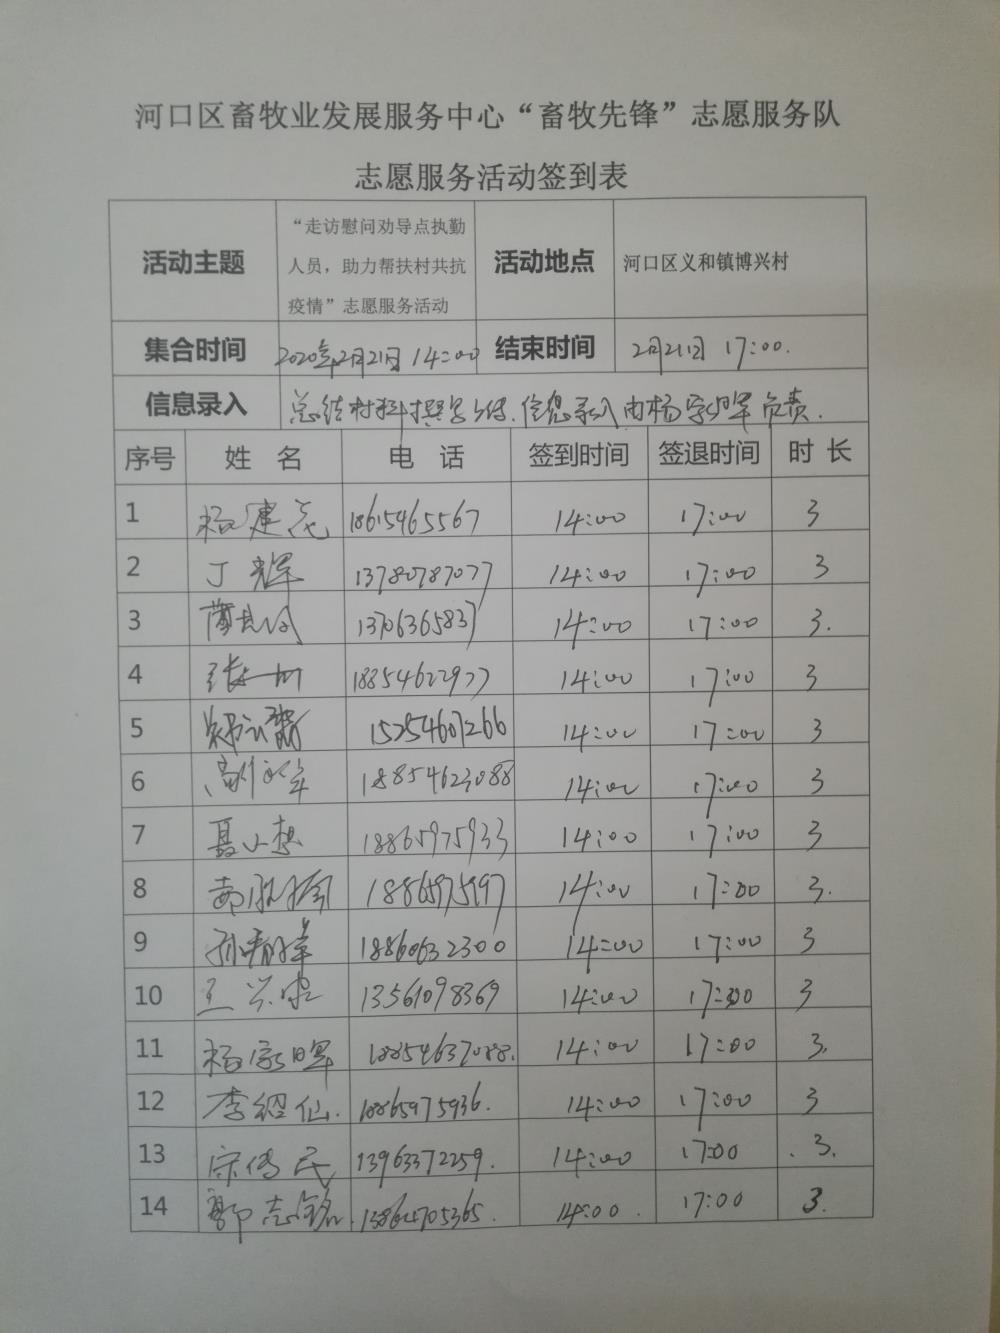 河口区畜牧业发展服务中心“畜牧先锋”志愿服务队
志愿服务活动签到表
活动主题 “走访慰问劝导点执勤人员，助力帮扶村共抗疫情”志愿服务活动 活动地点 河口区义和镇博兴村
集合时间 2020年2月21日 14:00 结束时间 2月21日 17:00.
信息录入 总结材料撰写上传.信息录入由杨家晖负责.
序号 姓 名 电 话 签到时间 签退时间 时 长
1 杨建 18615465567 14:00 17:00 3
2 丁辉 13780787077 14:00 17:00 3
3 1370636583 14:00 17:00 3.
4 张一 18854622977 14:00 17:00 3
5 15254607266 14:00 17:00 3
6 18854623088 14:00 17:00 3
7 聂小想 18865975933 14:00 17:00 3
8 18865975997 14:00 17:00 3.
9 孙 18860632300 14:00 17:00 3
10 王兴 13561098369 14:00 17:00 3
11 杨家晖 18854637088. 14:00 17:00 3.
12 李绍仙. 18865975936. 14:00 17:00 3
13 宋传民 13963372259. 14:00 17:00 . 3.
14 郭志铭 13864705365. 14:00. 17:00 3.